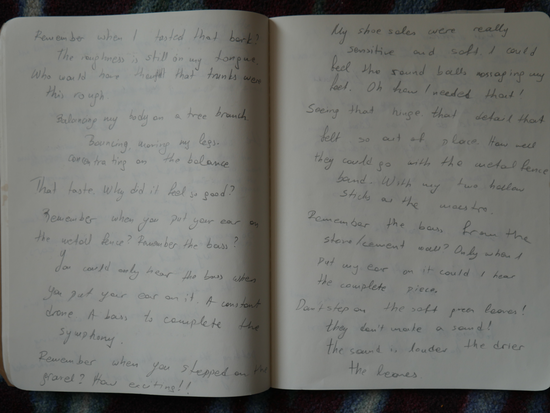 Remember when I tasted that bark?
The roughness is still on my tongue
Who would have thought that trunks were
this rough
Balancing my body on a tree branch
Bouncing moving my legs
concentrating on the balance
That taste. Why did it feel so good?
Remember when you put your ear on
the metal fence? Remember the bass?
You could only hear the bass when
you put your ear on it. A constant
drone A bass to complete the
symphony.
Remember when you stepped on the
gravel? How exciting!!
My shoe soles were really
sensitive and soft I could
feel the sound balls massaging my
feet. Oh how I needed that!
Seeing that hinge that detail that
felt so out of place How well
they could go with the metal fence
band. With my two hollow
sticks as the maestro.
Remember the bass from the
stone/cement wall? Only when I
put my ear on it could I hear
the complete piece.
Dont step on the soft green leaves!
they don't make a sound!
the sound is louder the drier
the leaves